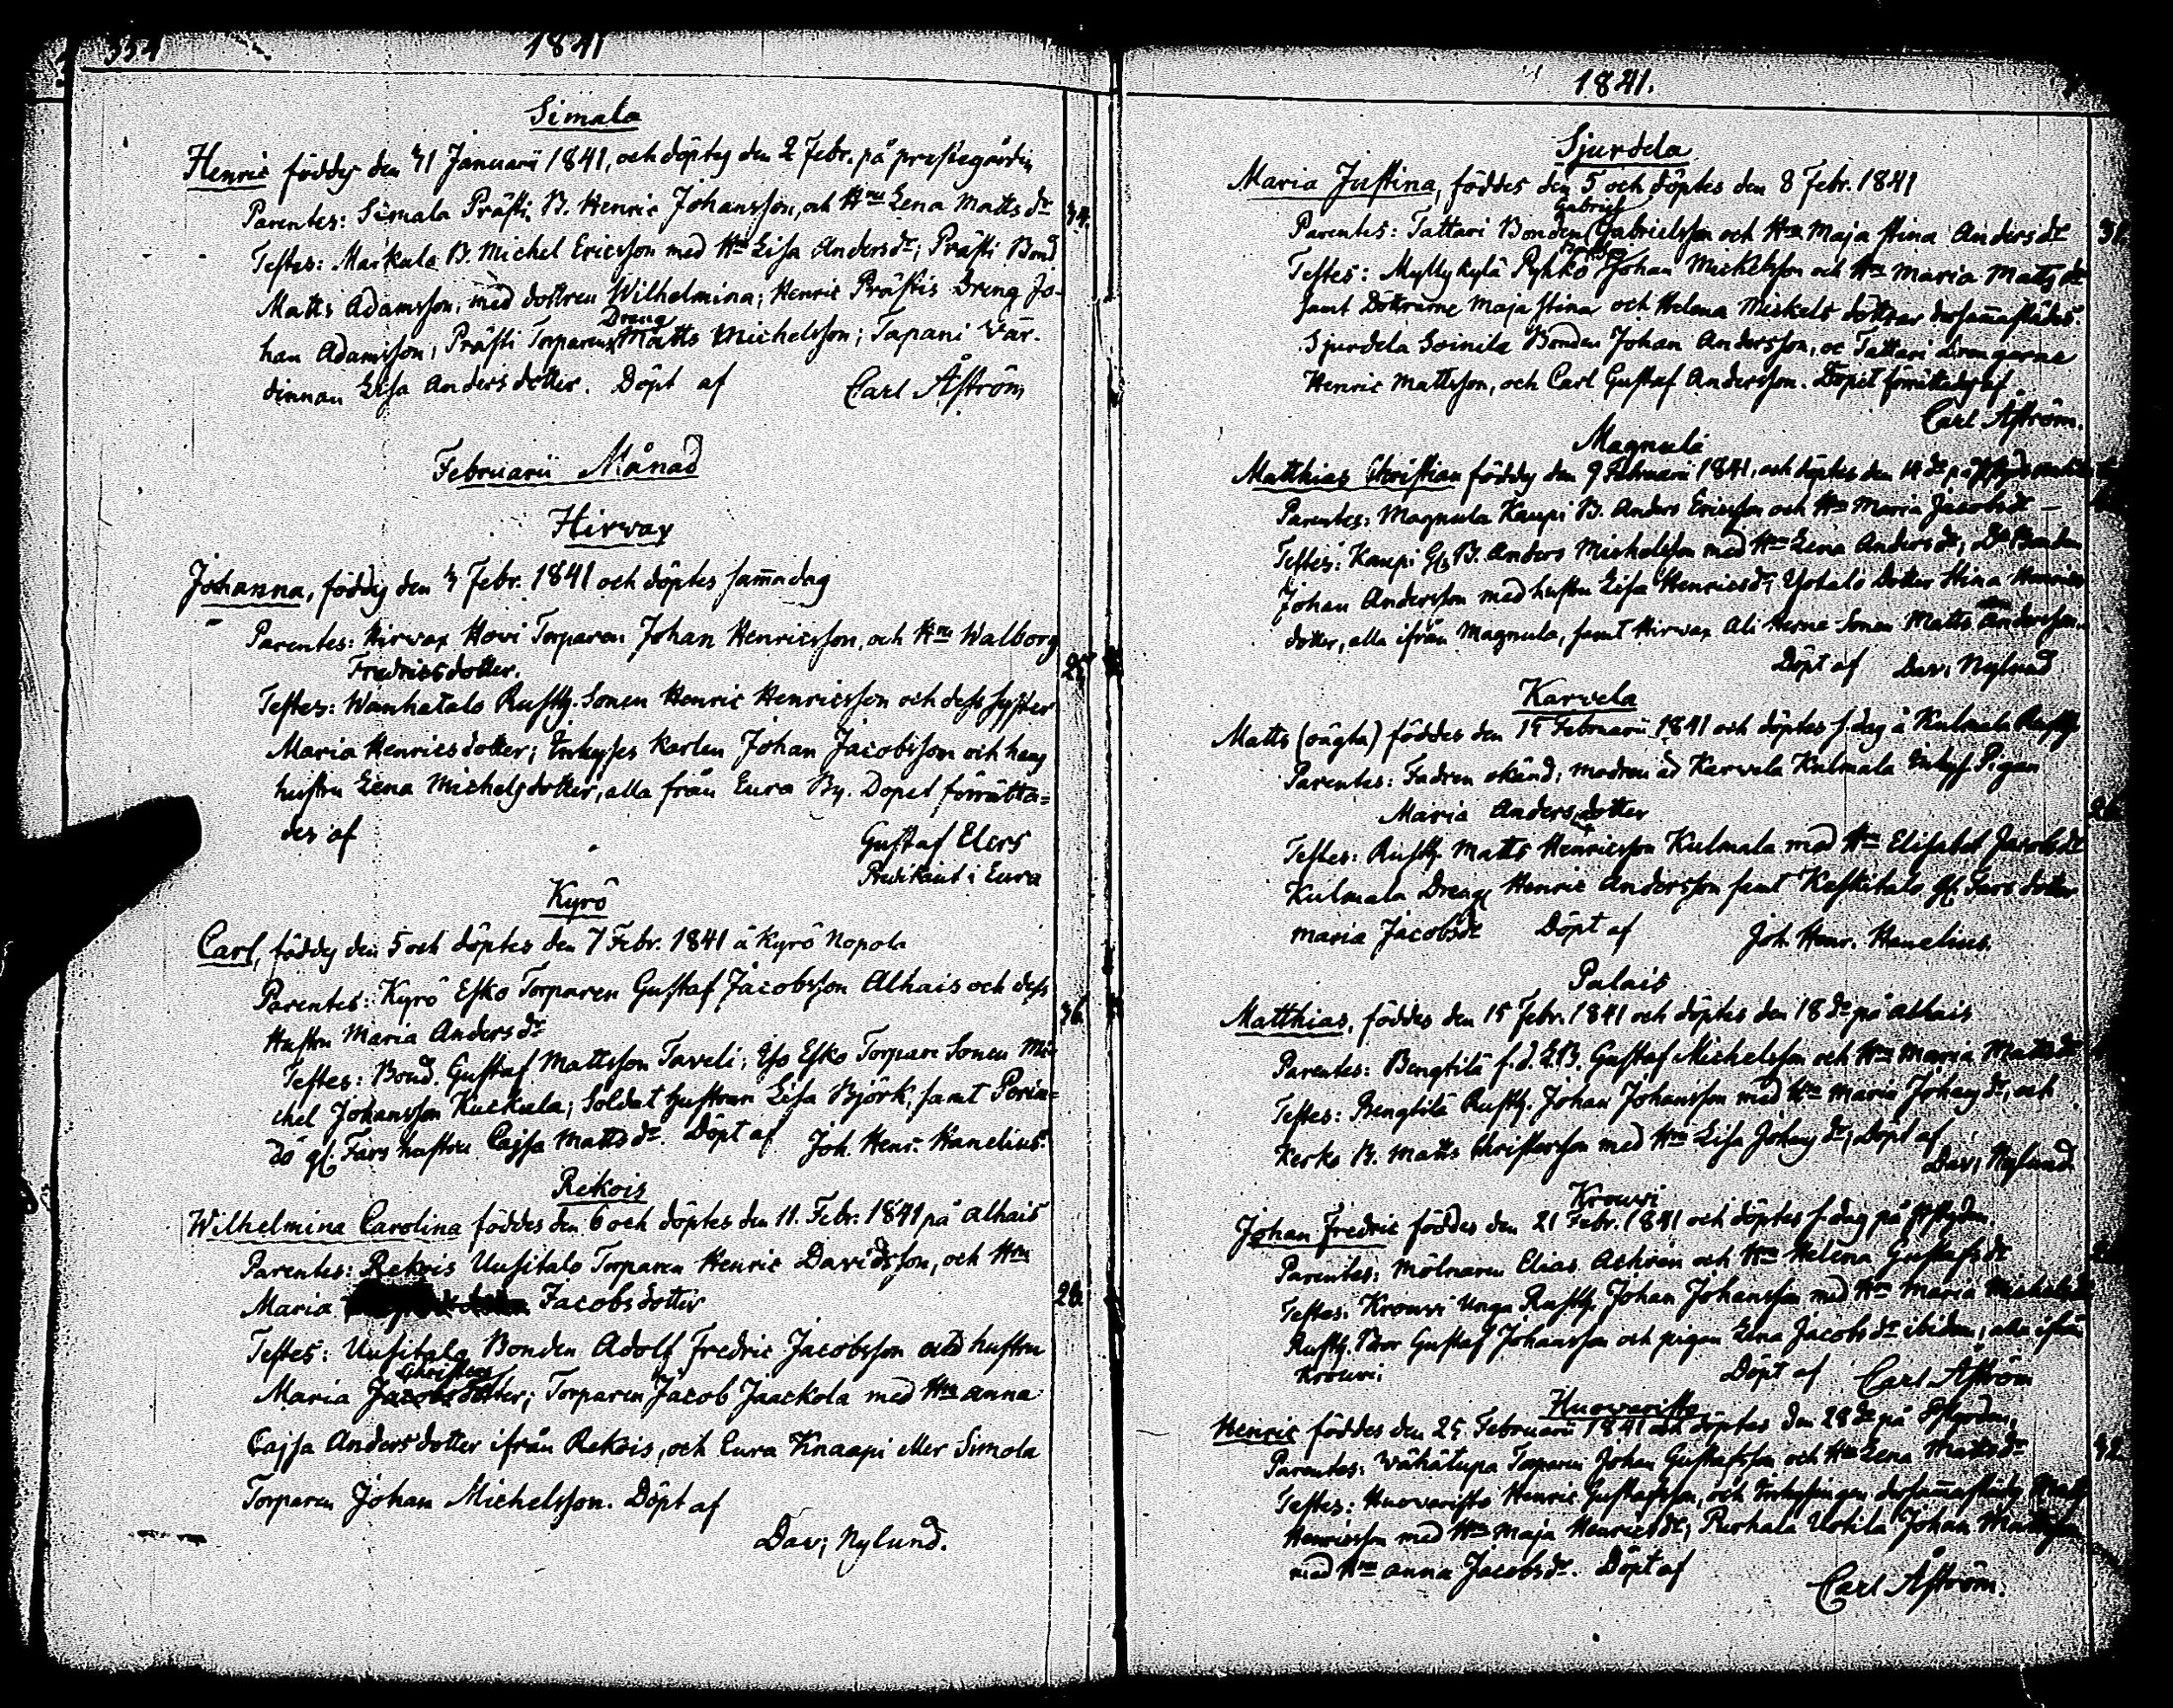 334
1841
Simala
Henric föddes den 31 Januarii 1841, och döptes den 2 Febr. på prestegården
Parentes: Simala Prästi B. Henric Johansson, och Hru Lena Matts dr
34.
Testes: Markula B. Michel Ericsson med Hru Lisa Andersdr; Prästi Bond
Matts Adamsson, med dottren Wilhelmina; Henric Prästis Dreng Jo-
han Adamsson; Prästi Torparens Dreng Matts Michelsson; Tapani Vär-
dinnan Lisa Anders dotter. Döpt af Carl Åström
Februarii Månad
Hirvox
Johanna, föddes den 3 Febr. 1841 och döptes samma dag
Parentes: Hirvox Hovi Torparen Johan Henricsson, och Hru Walborg
Fredricsdotter.
Testes: Wanhatalo Rusth. Sonen Henric Henricsson och dess syster
Maria Henricsdotter; Inhyses Karlen Johan Jacobsson och hans
hustru Lena Michelsdotter, alla från Eura By. Dopet förrätta=
des af Gustaf Elers
Predikant i Eura
Kyrö
Carl, föddes den 5 och döptes den 7 Febr. 1841 å Kyrö Nopola
Parentes: Kyrö Esko Torparen Gustaf Jacobsson Alhais och dess
Hustru Maria Anders dr
36.
Testes: Bond. Gustaf Mattsson Taveli; Iso Esko Torpare Sonen Mi-
chel Johansson Kuckula; Soldat hustrun Lisa Björk, samt Perin=
dö gl. Fars hustru Cajsa Matts dr. Döpt af Joh. Henr. Hanelius.
Rekois
Wilhelmina Carolina föddes den 6 och döptes den 11. Febr. 1841 på Alhais
Parentes: Rekois Uusitalo Torparen Henric Davidsson, och Hru
Maria Jacobsdotter
28.
Testes: Uusitalo Bonden Adolf Fredric Jacobsson och hustru
Maria Christers dotter; Torparen Jacob Jaackola med Hru Anna
Cajsa Andersdotter ifrån Rekois, och Eura Knaapi eller Simola
Torparen Johan Michelsson. Döpt af
Dav; Nylund.
1841.
Sjurdela
Maria Justina, föddes den 5 och döptes den 8 Febr. 1841
Parentes: Tattari Bonden Gabriel Gabrielsson och Hru Maja Stina Andersdr
Testes: Myllykylä Pyhkö Johan Mickelsson och Hru Maria Matts dr
samt Döttrarne Maja Stina och Helena Mickels döttrar dersammastädes.
Sjurdela Soinila Bonden Johan Andersson, oc Tattari Drengarne
Henric Mattsson, och Carl Gustaf Andersson. Dopet förrättades af
Carl Åström.
Magnula
Matthias Christian föddes den 9 Februarii 1841, och döptes den 14 dr på
Parentes: Magnula Kaupi B. Anders Ericsson och Hru Maria Jacobsdr
Testes: Kaupi Gl. B. Anders Michelsson med Hru Lena Andersdr; Do Bonden
Johan Andersson med hustru Lisa Henricsdr; Ylitalo Dotter Stina Henrics
dotter, alla ifrån Magnula, samt Hirvox Ali Herne Sonen Matts Andersson.
Döpt af Dav; Nylund
Karvela
Matts (oägta) föddes den 15 Februarii 1841 och döptes s. dag å Kulmala Rusth.
Parentes: Fadren okänd; modren är Karvela Kulmala Inhys. Pigan
Maria Andersdotter
Testes: Rusth. Matts Henricsson Kulmala med Hru Elisabet Jacobsdr
Kulmala Dreng Henric Andersson samt Keskitalo gl. Fars dotter
Maria Jacobsdr Döpt af Joh. Henr. Hanelius.
Palais
Matthias, föddes den 15 Febr. 1841 och döptes den 18 dr på Alhais
Parentes: Bengtilä f.d. L.B. Gustaf Michelsson och Hru Maria Mattsdr
Testes: Bengtilä Rusth. Johan Johansson med Hru Maria Johansdr, och
Kerko B. Matts Christersson med Hru Lisa Johansdr; Döpt af
Dav; Nylund
Krouvi
Johan Fredric föddes den 21 Febr. 1841 och döptes s. dag på
Parentes: Mölnaren Elias Achren och Hru Helena Gustafsdr
Testes: Krouvi Unga Rusth. Johan Johansson med Hru Maria Michelsdr
Rusth. Bror Gustaf Johansson och pigan Lena Jacobsdr ibidem, alla ifrån
Krouvi. Döpt af Carl Åström
Huovaristo
Henric föddes den 25 Februarii 1841 och döptes den 28 dr på
Parentes: Wähätupa Torparen Johan Gustafsson och Hru Lena Mattsdr
Testes: Huovaristo Henric Gustafsson, och Inhysingen dersammastädes Matts
Henricsson med Hru Maja Henricsdr; Purhala Uotila Johan
med Hru Anna Jacobsdr. Döpt af
Carl Åström.